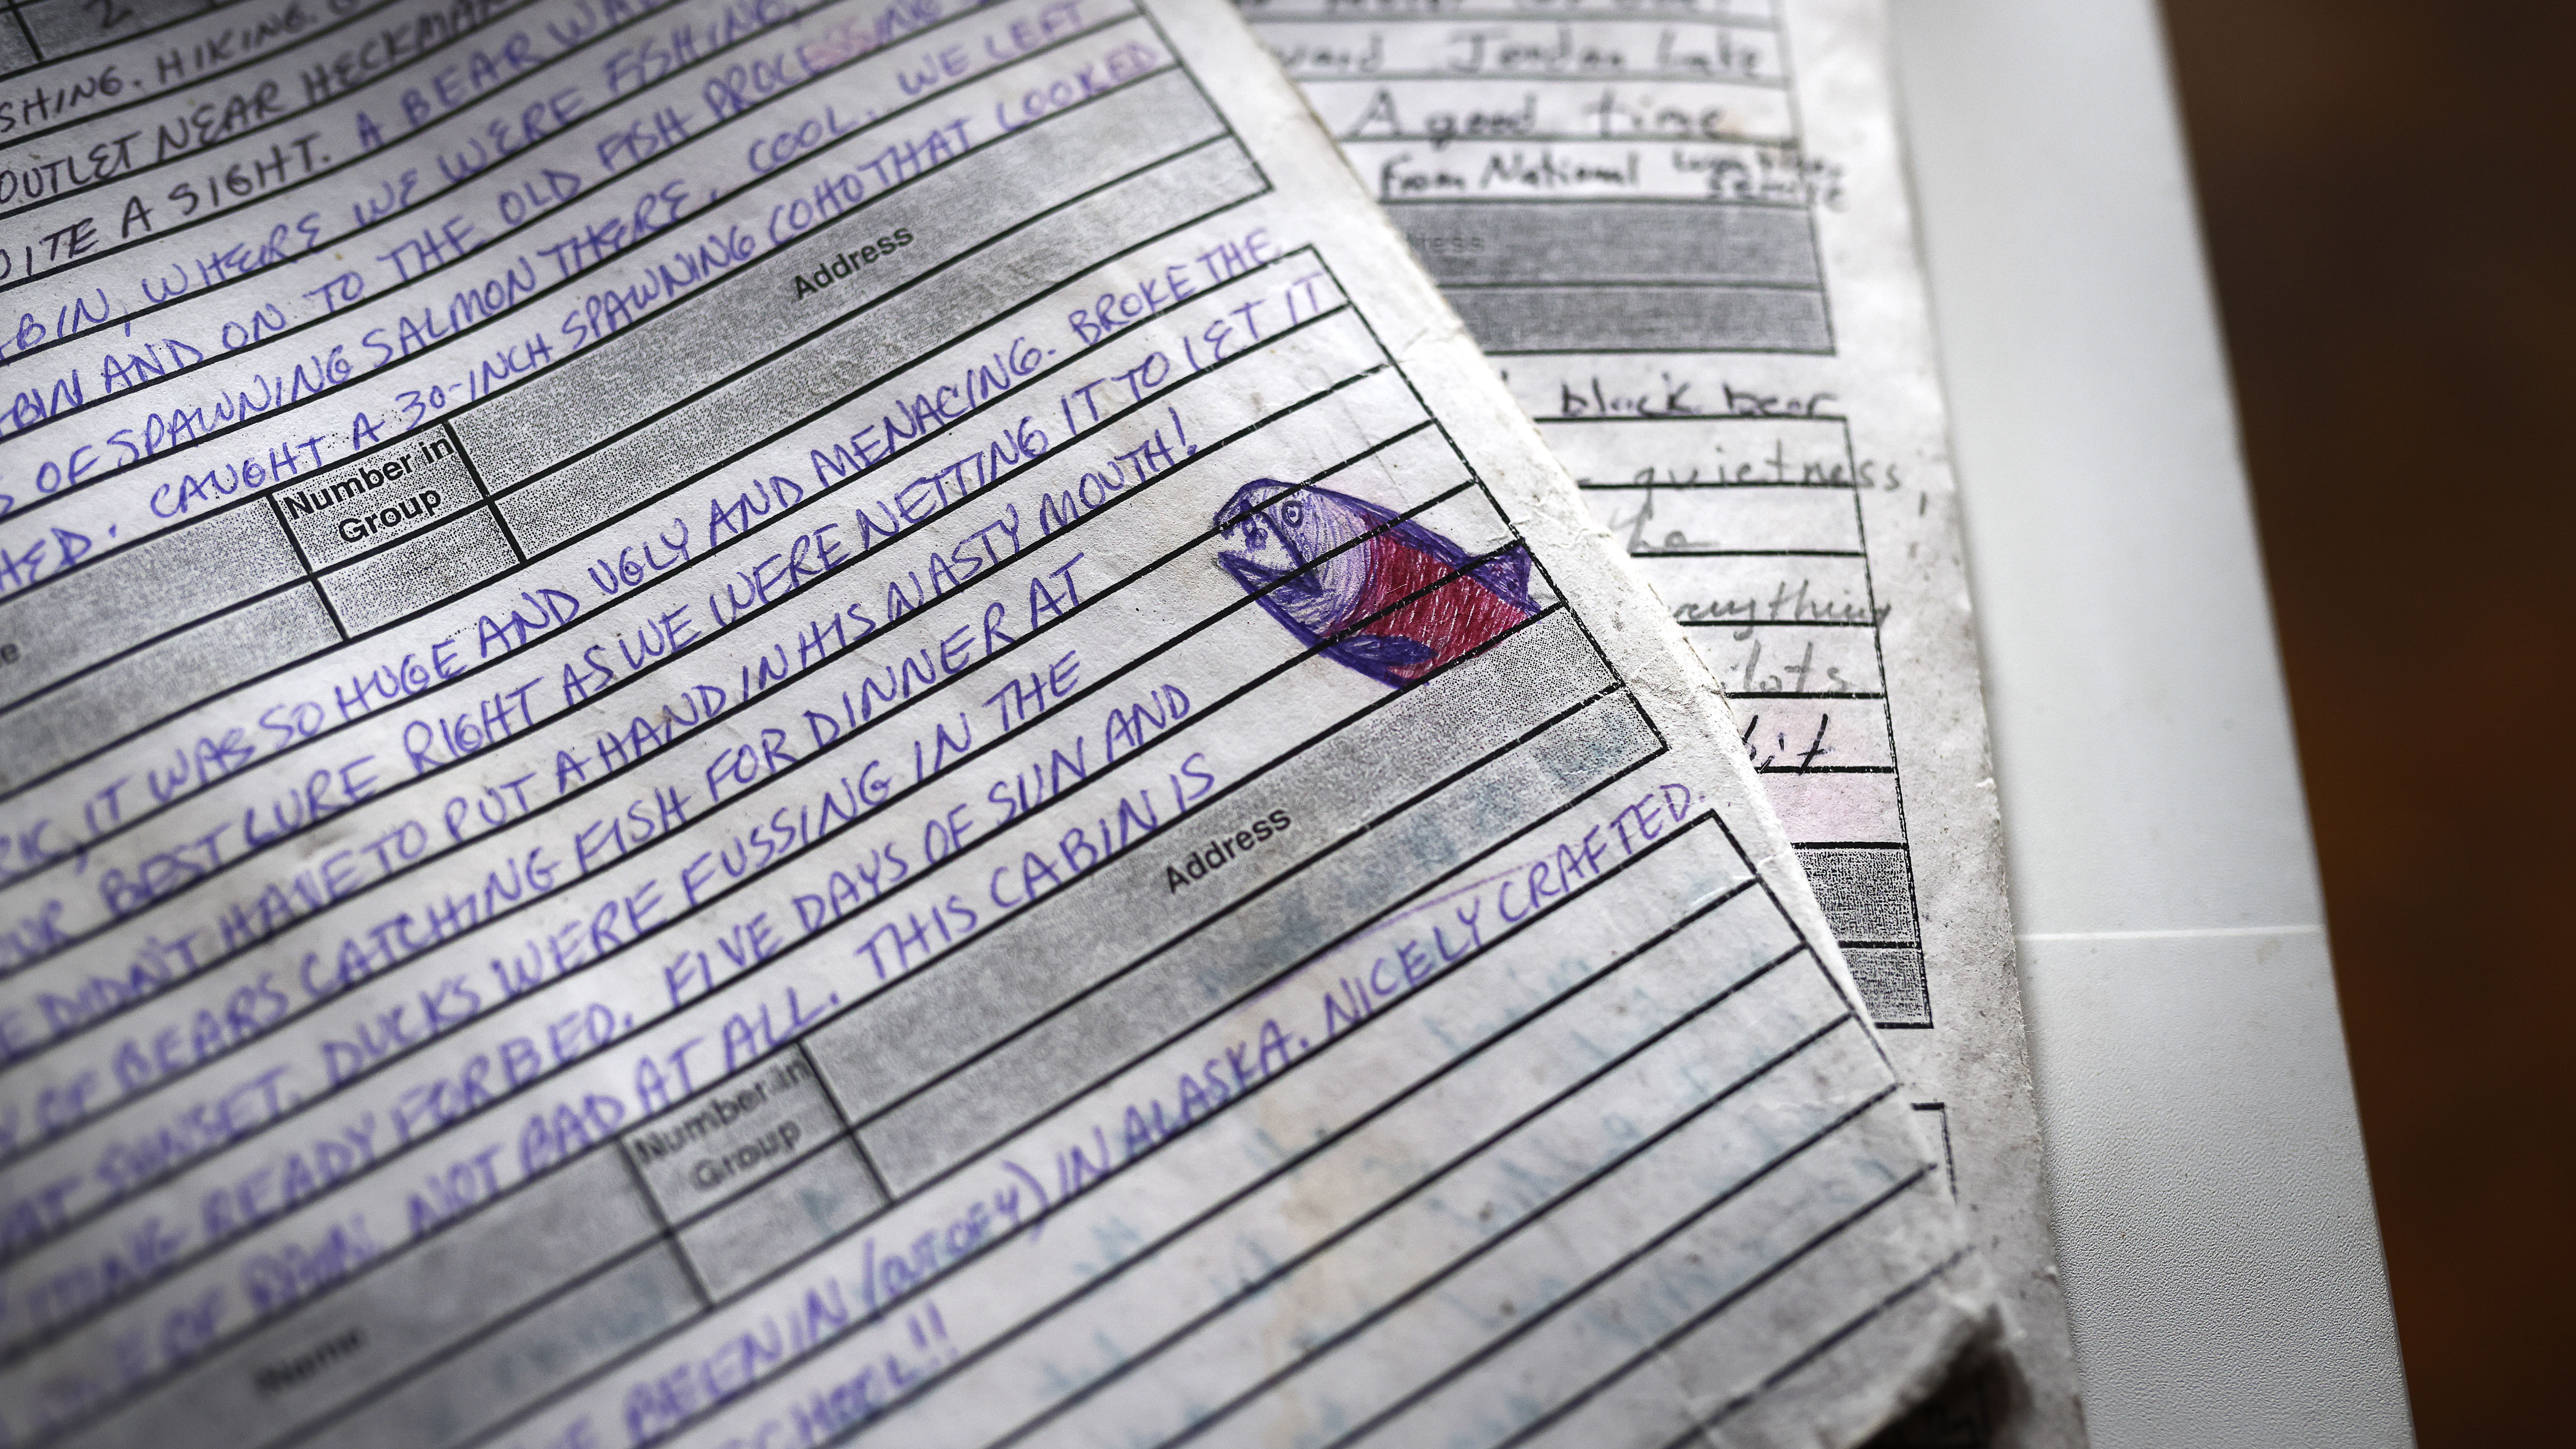 2
SHING. HIKING.
OUTLET NEAR HECKMAN
ITE A SIGHT. A BEAR WA
BIN, WHERE WE WERE FISHING,
BIN AND ON TO THE OLD FISH PROCESSING
S OF SPAWNING SALMON THERE. COOL. WE LEFT
HED. CAUGHT A 30-INCH SPAWNING COHO THAT LOOKED
Number in
Group
Address
IT WAS SO HUGE AND UGLY AND MENACING. BROKE THE
OUR BEST LURE RIGHT AS WE WERE NETTING IT TO LET IT
E DIDN'T HAVE TO PUT A HAND IN HIS NASTY MOUTH!
Y OF BEARS CATCHING FISH FOR DINNER AT
AT SUNSET. DUCKS WERE FUSSING IN THE
TTING READY FOR BED. FIVE DAYS OF SUN AND
E OF RAIN. NOT BAD AT ALL. THIS CABIN IS
Name
Number in
Group
Address
BEEN IN (OUT OF 4) IN ALASKA. NICELY CRAFTED.
Jordan Lake
A good time
From National
black bear
quietness,
the
anything
lots
bit